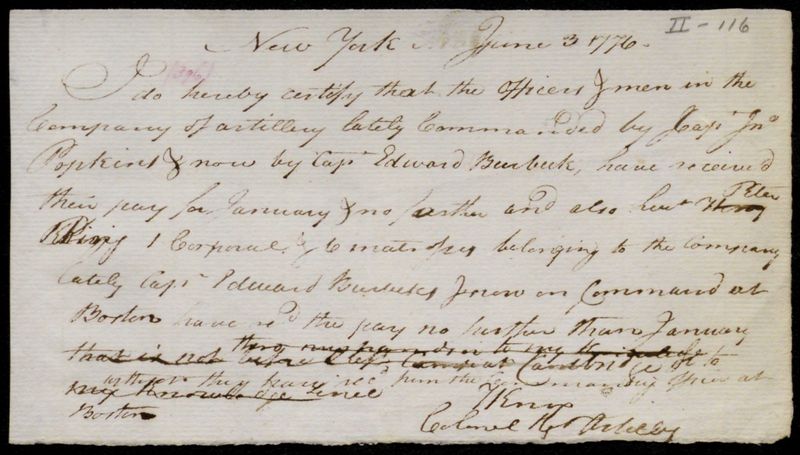 II - 116
New York June 3 1776.
(396)
I do hereby certify that the Officers & men in the
Company of artillery lately Commanded by Capt Jno
Popkins & now by Capt Edward Burbeck, have receiv'd
their pay for January & no further and also Lieut Henry Peter
King 1 Corporal & 6 matrosses belonging to the Company
lately Capt Edward Burbecks & now on Command at
Boston have recd the pay no further than January
that is not before they Camp at Cambridge
to
my knowledge since
unless they have recd from the commanding Officer at
Boston
HKnox
Colonel Rgt Artillery